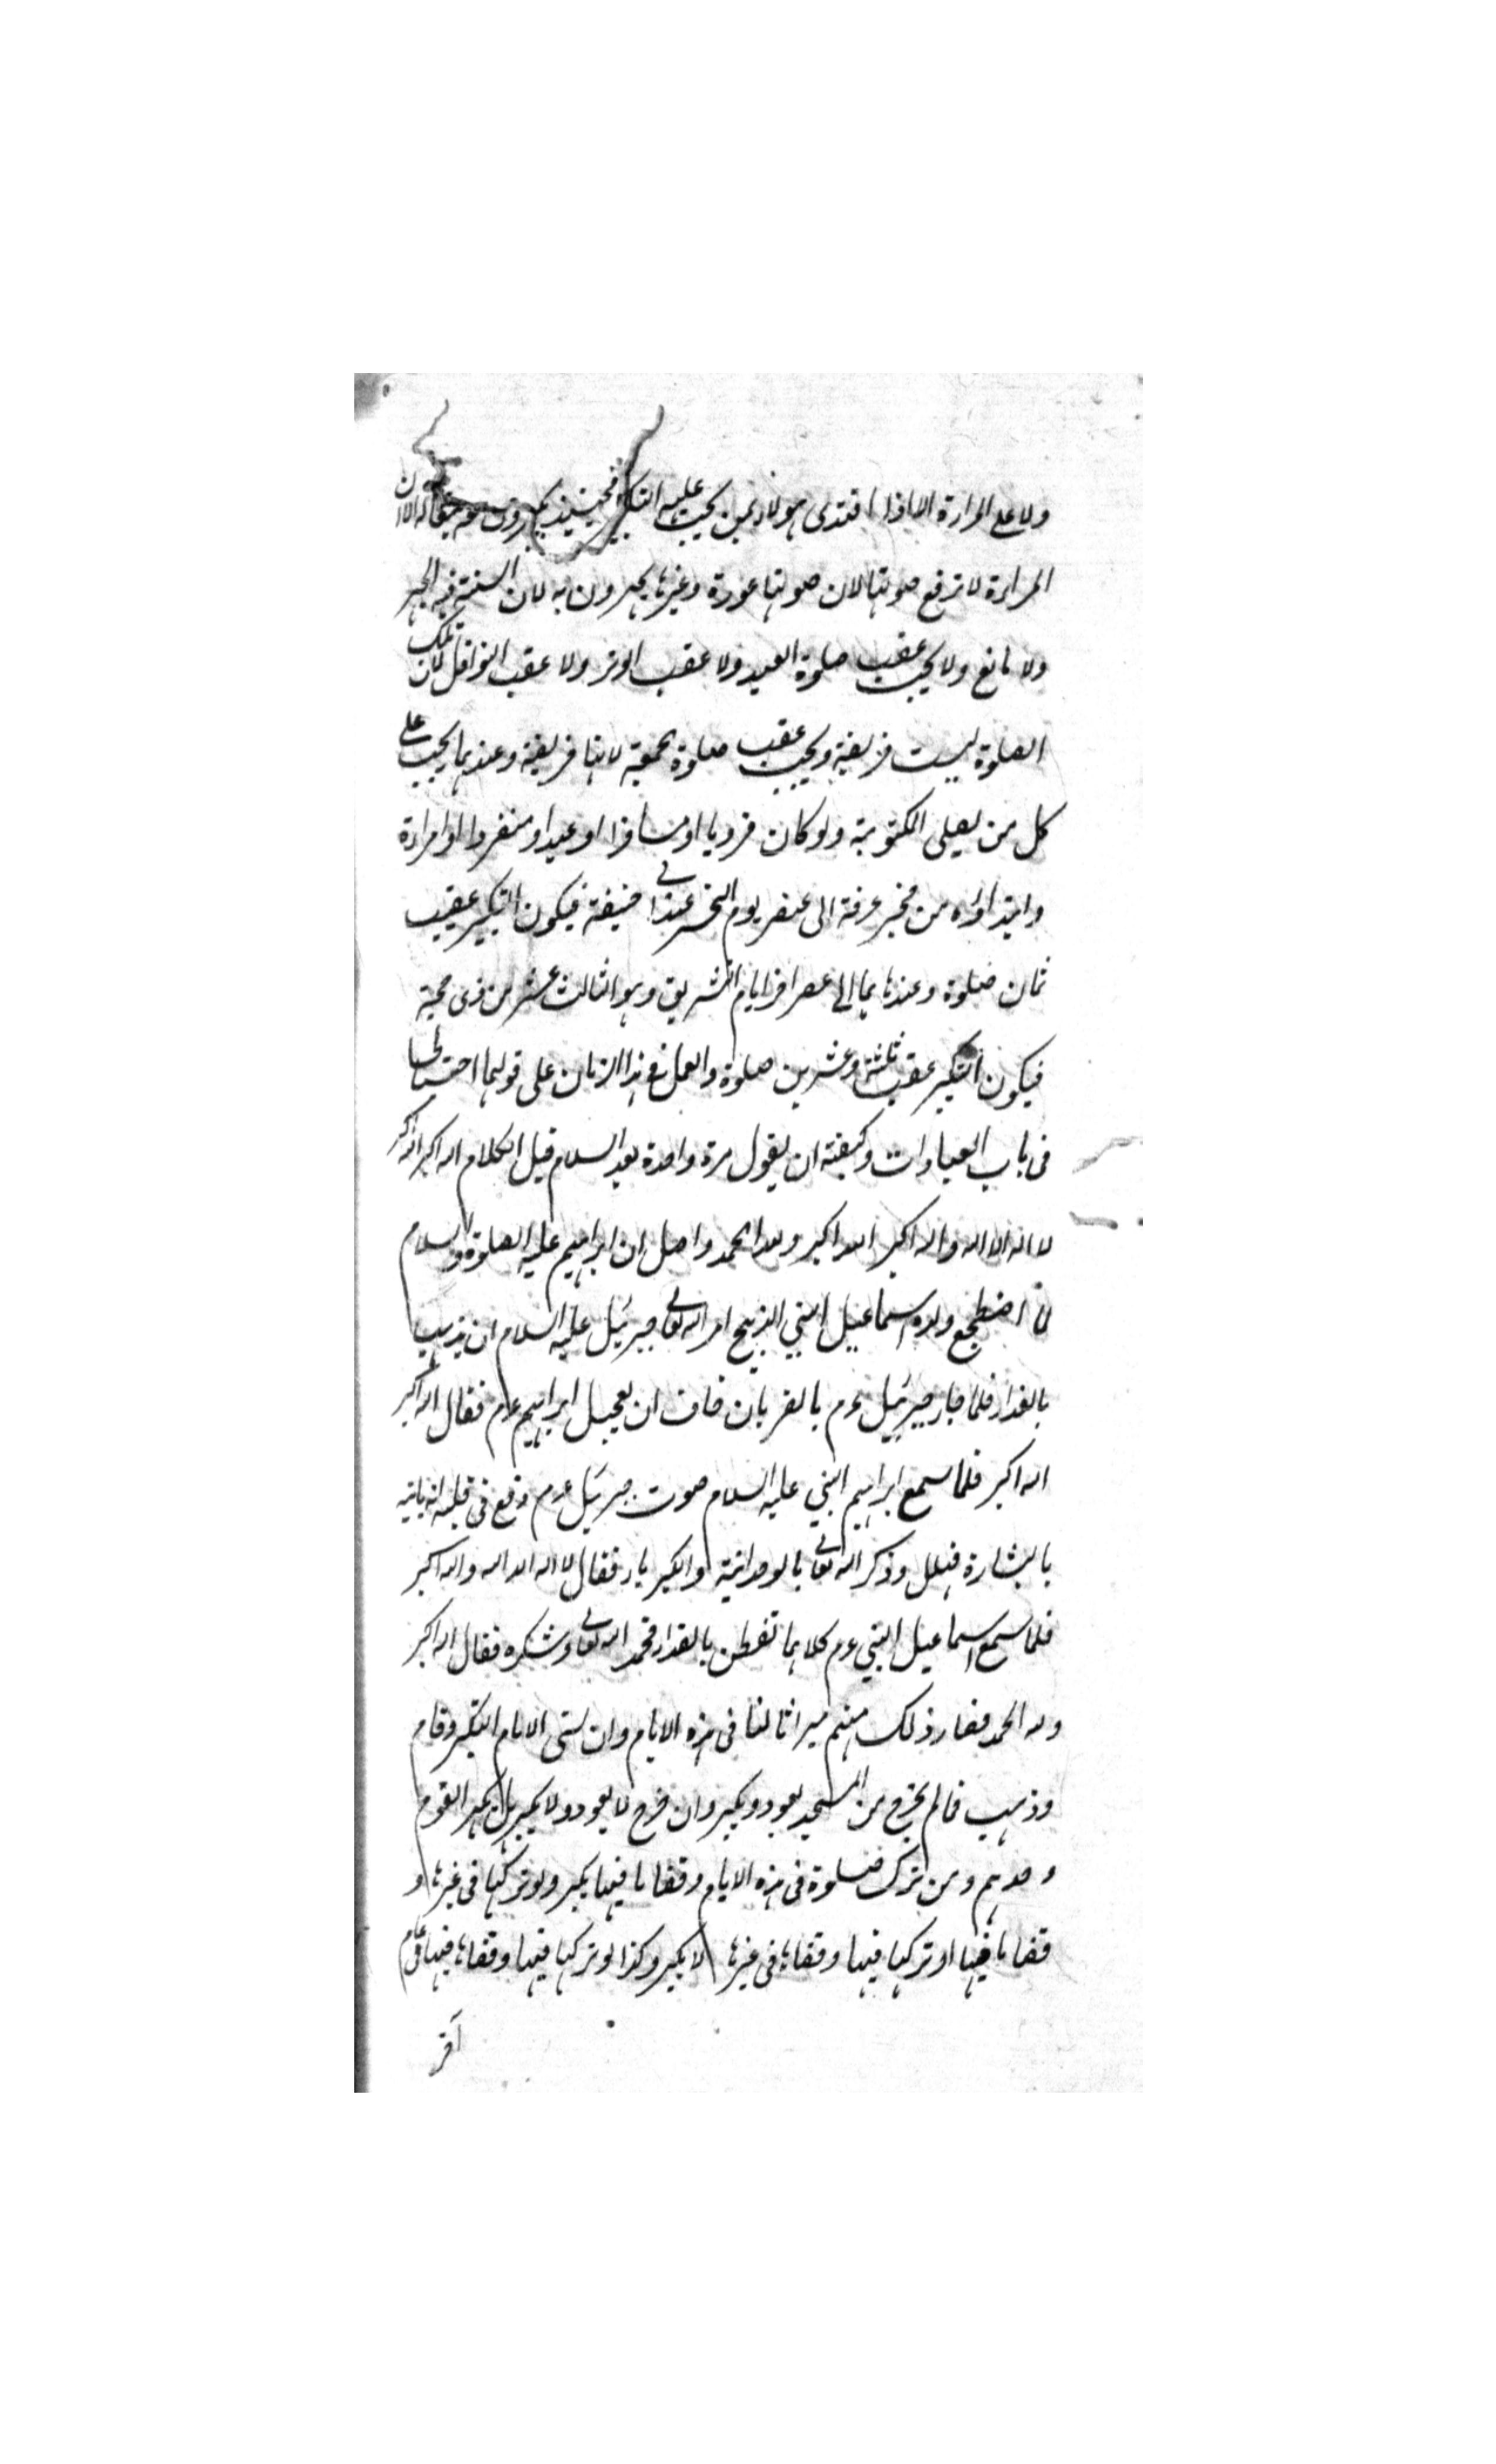 ولا على المراءة الا اذا اقتدى هؤلاء بمن يجب عليه التكبير فحينئذ يكبرون الا ان
المراءة لا ترفع صوتها لان صوتها عورة وغيرها يجهرون به لان السنة فيه الجهر
ولا مانع ولا يجب عقب صلوة العيد ولا عقب الوتر ولا عقب النوافل لان تلك
الصلوة ليست فريضة ويجب عقب صلوة جمعة لانها فريضة وعندهما يجب على
كل من يصلى المكتوبة ولو كان قرويا او مسافرا او عبدا او منفردا او امراءة
وابتداؤه من فجر عرفة الى عصر يوم النحر عند ابى حنيفة فيكون التكبير عقيب
ثمان صلوة وعندهما الى عصر اخر ايام التشريق وهو الثالث عشر من ذى حجة
فيكون التكبير عقب ثلثة وعشرين صلوة والعمل فى هذا الزمان على قولهما احتياطا
فى باب العبادات وكيفيته ان يقول مرة واحدة بعد السلام قبل الكلام الله اكبر الله اكبر
لا اله الا الله والله اكبر الله اكبر ولله الحمد واصله ان ابراهيم عليه الصلوة والسلام
لما اضطجع ولده اسماعيل النبي الذبيح امر الله تعالى جبرئيل عليه السلام ان يذهب
بالفداء فلما جاء جبرئيل عم بالقربان خاف ان يعجل ابراهيم عم فقال الله اكبر
الله اكبر فلما سمع ابراهيم النبي عليه السلام صوت جبرئيل عم وقع فى قلبه انه ياتيه
بالبشارة فهلل وذكر الله تعالى بالوحدانية والكبرياء فقال لا اله الا الله والله اكبر
فلما سمع اسماعيل النبي عم كلامهما تفطن بالفداء فحمد الله تعالى وشكره فقال الله اكبر
ولله الحمد فصار ذلك منهم ميراثا لنا فى هذه الايام وان نسى الامام التكبير وقام
وذهب فمالم يخرج من المسجد يعود ويكبر وان خرج لا يعود ولا يكبر بل يكبر القوم
وحدهم ومن ترك صلوة فى هذه الايام وقضاها فيها يكبر ولو تركها فى غيرها و
قضاها فيها او تركها فيها وقضاها فى غيرها لا يكبر وكذا لو تركها فيها وقضاها فيها فى عام
آخر